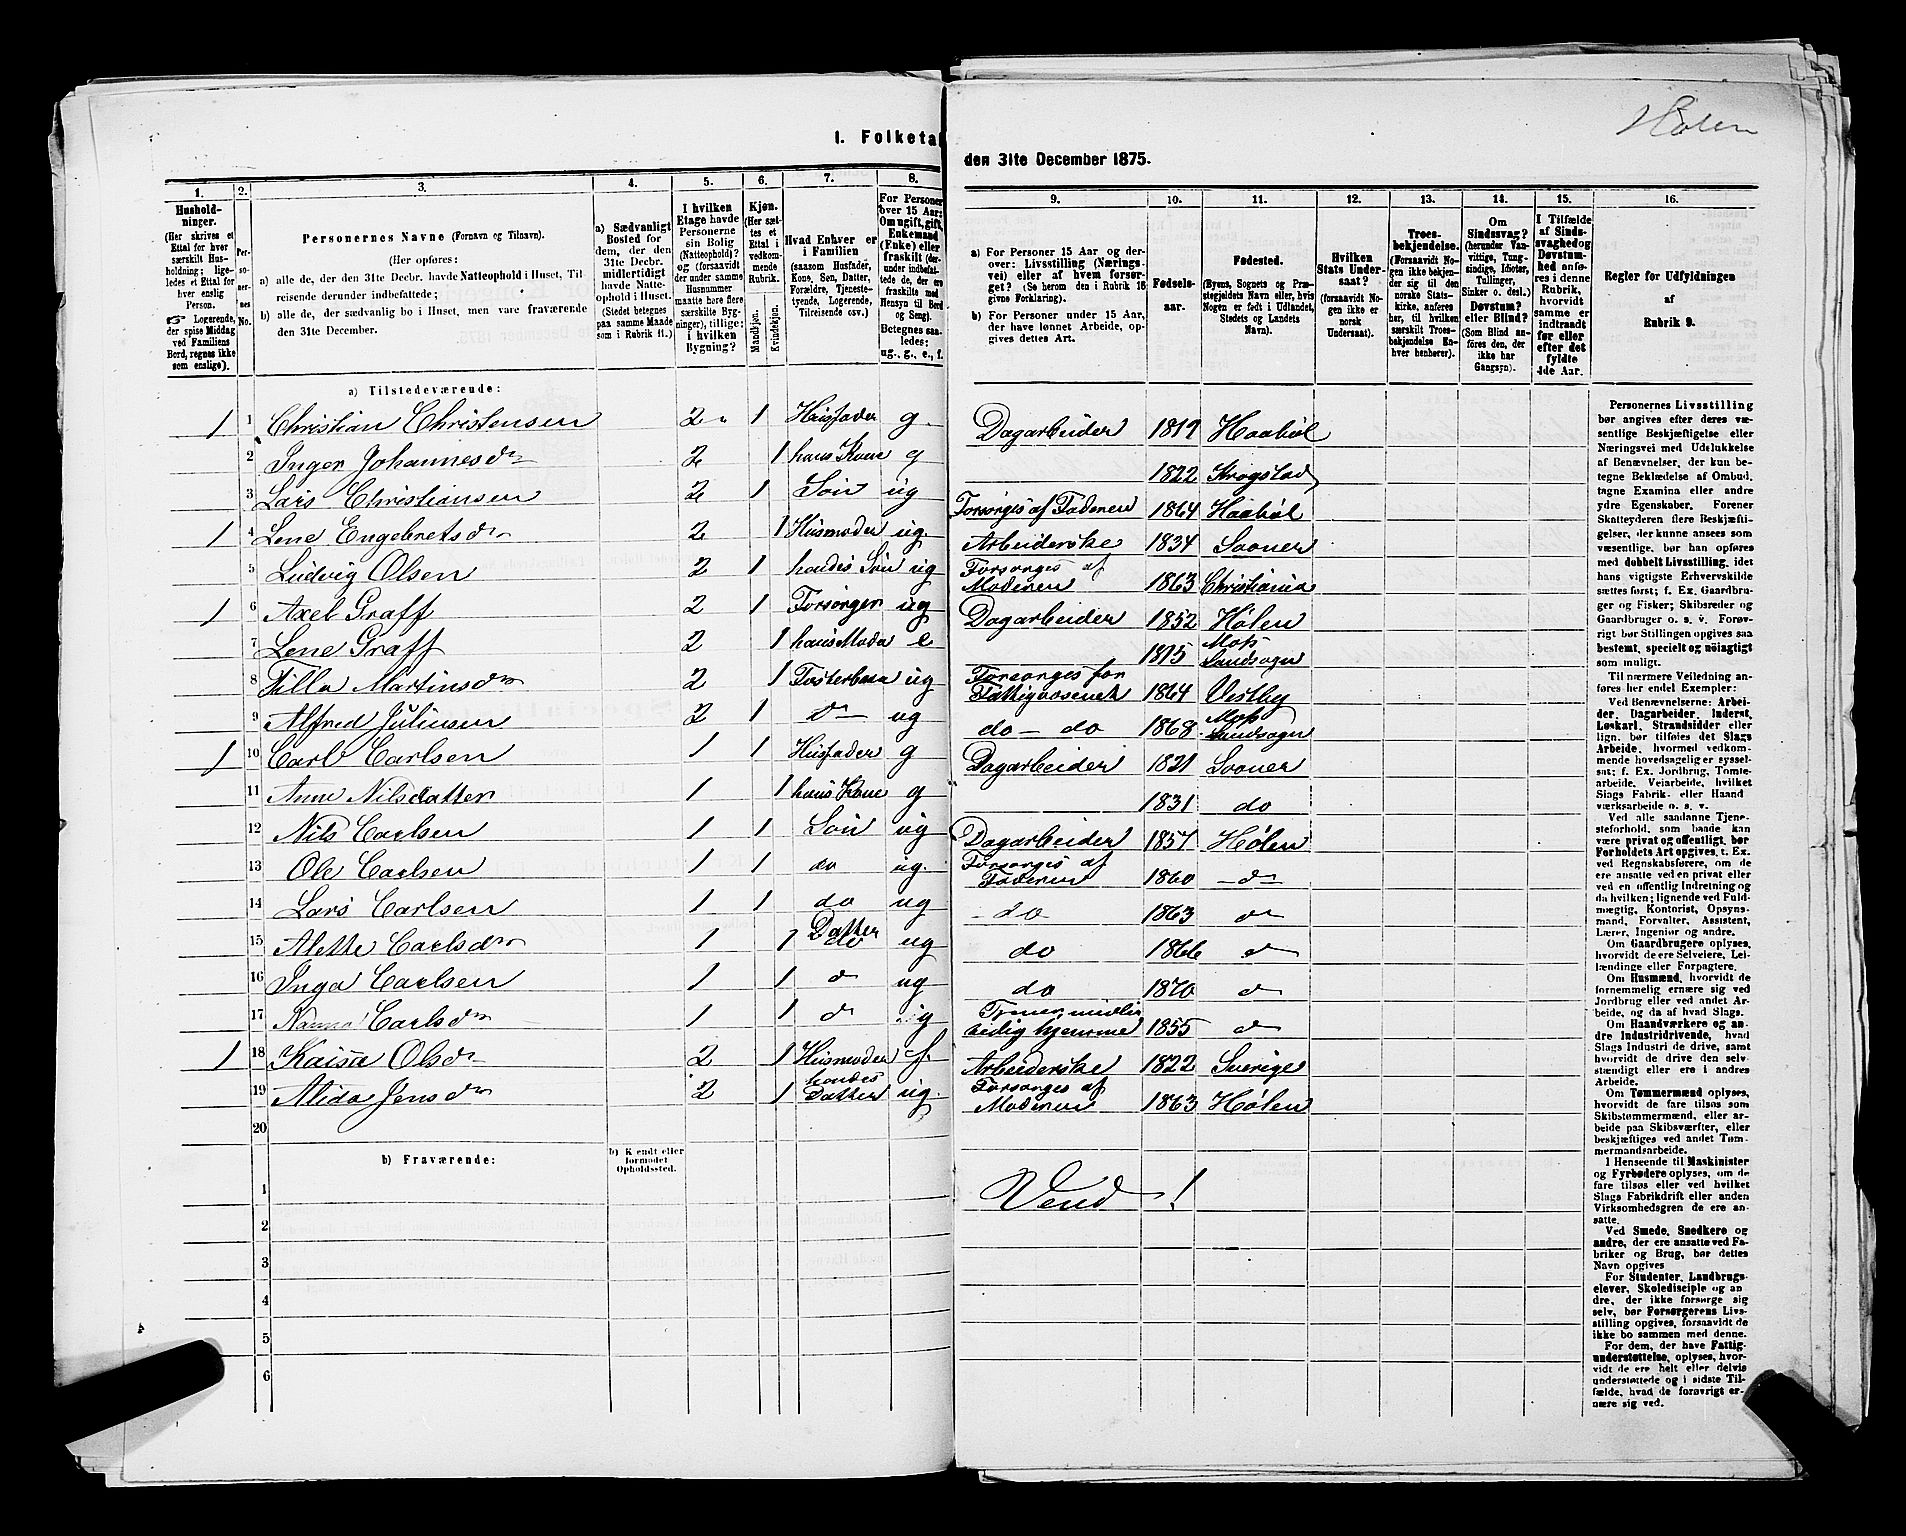 Hølen
I. Folketal
den 31te December 1875.
1. 2. 3. 4. 5. 6. 7. 8. 9. 10. 11. 12. 13. 14. 15. 16.
Husholdninger. (Her skrives et Ettal for hver særskilt Husholdning; ligeledes et Ettal for hver enslig Person. ☞ Logerende, der spise Middag ved Familiens Bord, regnes ikke som enslige).
Personernes No.
Personernes Navne (Fornavn og Tilnavn).
(Her opføres:
a) alle de, der den 31te Decbr. havde Natteophold i Huset, Tilreisende derunder indbefattede;
b) alle de, der sædvanlig bo i Huset, men vare fraværende den 31te December.
a) Sædvanligt Bosted for dem, der den 31te Decbr. midlertidigt havde Natteophold i Huset. (Stedet betegnes paa samme Maade som i Rubrik 11.)
I hvilken Etage havde Personerne sin Bolig (Natteophold)? og (forsaavidt der under samme Husnummer maatte høre flere særskilte Bygninger), tillige: i hvilken Bygning?
Kjøn. (Her sættes et Ettal i vedkommende Rubrik. Mandkjøn. Kvindekjøn.
Hvad Enhver er i Familien (saasom Husfader, Kone, Søn, Datter, Forældre, Tjenestetyende, Logerende, Tilreisende osv.)
For Personer over 15 Aar: Om ugift, gift, Enkemand (Enke) eller fraskilt (derunder indbefattede de, der ere fraskilte med Hensyn til Bord og Seng). Betegnes saaledes: ug., g., e., f.
a) For Personer 15 Aar og derover: Livsstilling (Næringsvei) eller af hvem forsørget? (Se herom den i Rubrik 16 givne Forklaring).
b) For Personer under 15 Aar, der have lønnet Arbeide, opgives dettes Art.
Fødselsaar.
Fødested. (Byens, Sognets og Præstegjeldets Navn eller, hvis Nogen er født i Udlandet, Stedets og Landets Navn).
Hvilken Stats Undersaat? (forsaavidt Nogen ikke er norsk Undersaat).
Troesbekjendelse. (Forsaavidt Nogen ikke bekjender sig til den norske Statskirke, anføres her, til hvilken særskilt Troesbekjendelse Enhver henhører).
Om Sindssvag? (herunder Vanvittige, Tungsindige, Idioter, Tullinger, Sinker o. desl.) Døvstum? eller Blind? (Som Blind anføres den, der ikke har Gangsyn).
I Tilfælde af Sindssvaghed og Døvstumhed anføres i denne Rubrik, hvorvidt samme er indtraadt før eller efter det fyldte 4de Aar.
Regler for Udfyldningen af Rubrik 9.
a) Tilstedeværende:
1 1 Christian Christensen 2 1 Husfader g Dagarbeider 1819 Haabøl
2 Inger Johannesdr 2 1 hans Kone g 1822 Krogstad
3 Lars Christiansen 2 1 Søn ug Forsørges af Faderen 1864 Haabøl
1 4 Lene Engebretsdr 2 1 Husmoder ug. Arbeiderske 1834 Saaner
5 Ludvig Olsen 2 1 hendes Søn ug Forsørges af Moderen 1863 Christiania
1 6 Axel Graff 2 1 Forsørger ug Dagarbeider 1852 Hølen
7 Lene Graff 2 1 hans Moder e 1815 Moss Landsogn
8 Tilla Martinsdr 2 1 Fosterbarn ug Forsørges for Fattigvæsenet 1864 Vestby
9 Alfred Juliusen 2 1 do ug do - do 1868 Moss Landsogn
1 10 Carl Carlsen 1 1 Husfader g Dagarbeider 1821 Saaner
11 Anne Nilsdatter 1 1 hans Kone g 1831 do
12 Nils Carlsen 1 1 Søn ug Dagarbeider 1857 Hølen
13 Ole Carlsen 1 1 do ug. Forsørges af Faderen 1860 do
14 Lars Carlsen 1 1 do ug do 1863 do
15 Alette Carlsdr 1 1 Datter do ug do 1866 do
16 Inga Carlsen 1 1 do ug do 1870 do
17 Carlsdr 1 1 do ug hjemme 1855 do
1 18 Kaisa Olsdr 2 1 Husmoder f. Arbeiderske 1822 Sverige
19 Alida Jensdr 2 1 hendes Datter ug. Forsørges af Moderen 1863 Hølen
20
b) Fraværende:
b) Kjendt eller formodet Opholdssted.
1 Vend!
2
3
4
5
6
Personernes Livsstilling
bør angives efter deres væ-
sentlige Beskjæftigelse eller
Næringsvei med Udelukkelse
af Benævnelser, der kun be-
tegne Beklædelse af Ombud,
tagne Examina eller andre
ydre Egenskaber. Forener
Skatteyderen flere Beskjæfti-
gelser, der kunne ansees som
væsentlige, bør han opføres
med dobbelt Livsstilling, idet
hans vigtigste Erhvervskilde
sættes først; f. Ex. Gaardbru-
ger og Fisker; Skibsreder og
Gaardbruger o. s. v. Forøv-
rigt bør Stillingen opgives saa
bestemt, specielt og nöiagtigt
som muligt.
Til nærmere Veiledning an-
føres her endel Exempler:
Ved Benævnelserne: Arbei-
der, Dagarbeider, Inderst,
Løskarl, Strandsidder eller
lign. bør tilføies det Slags
Arbeide, hvormed vedkom-
mende hovedsagelig er syssel-
sat; f. Ex. Jordbrug, Tomte-
arbeide, Veiarbeide, hvilket
Slags Fabrik- eller Haand-
værksarbeide o. s. v.
Ved alle saadanne Tjene-
steforhold, som baade kan
være privat og offentligt, bør
Forholdets Art opgives, t. Ex.
ved Regnskabsførere, om de
ere ansatte ved en privat eller
ved en offentlig Indretning og
da hvilken; lignende ved Fuld-
mægtig, Kontorist, Opsyns-
mand, Forvalter, Assistent,
Lærer, Ingeniør og andre.
Om Gaardbrugere oplyses,
hvorvidt de ere Selveiere, Lei-
lændinge eller Forpagtere.
Om Husmænd, hvorvidt de
fornemmelig ernære sig ved
Jordbrug eller ved andet Ar-
beide, og da af hvad Slags.
Om Haandværkere og an-
dre Industridrivende, hvad
Slags Industri de drive, samt
hvorvidt de drive den selv-
stændigt eller ere i andres
Arbeide.
Om Tømmermænd oplyses,
hvorvidt de fare tilsøs som
Skibstømmermænd, eller ar-
beide paa Skibsværfter, eller
beskjæftiges ved andet Tøm-
mermandsarbeide.
I Henseende til Maskinister
og Fyrbødere oplyses, om de
fare tilsøs eller ved hvilket
Slags Fabrikdrift eller anden
Virksomhedsgren de ere an-
satte.
Ved Smede, Snedkere og
andre, der ere ansatte ved Fa-
briker og Brug, bør dettes
Navn opgives
For Studenter, Landbrugs-
elever, Skoledisciple og an-
dre, der ikke forsørge sig
selv, bør Forsørgerens Livs-
stilling opgives, forsaavidt de
ikke bo sammen med denne.
For dem, der have Fattig-
understøttelse, oplyses, hvor-
vidt de ere helt eller delvis
understøttede og i sidste Til-
fælde, hvad de forøvrigt er-
nære sig ved.